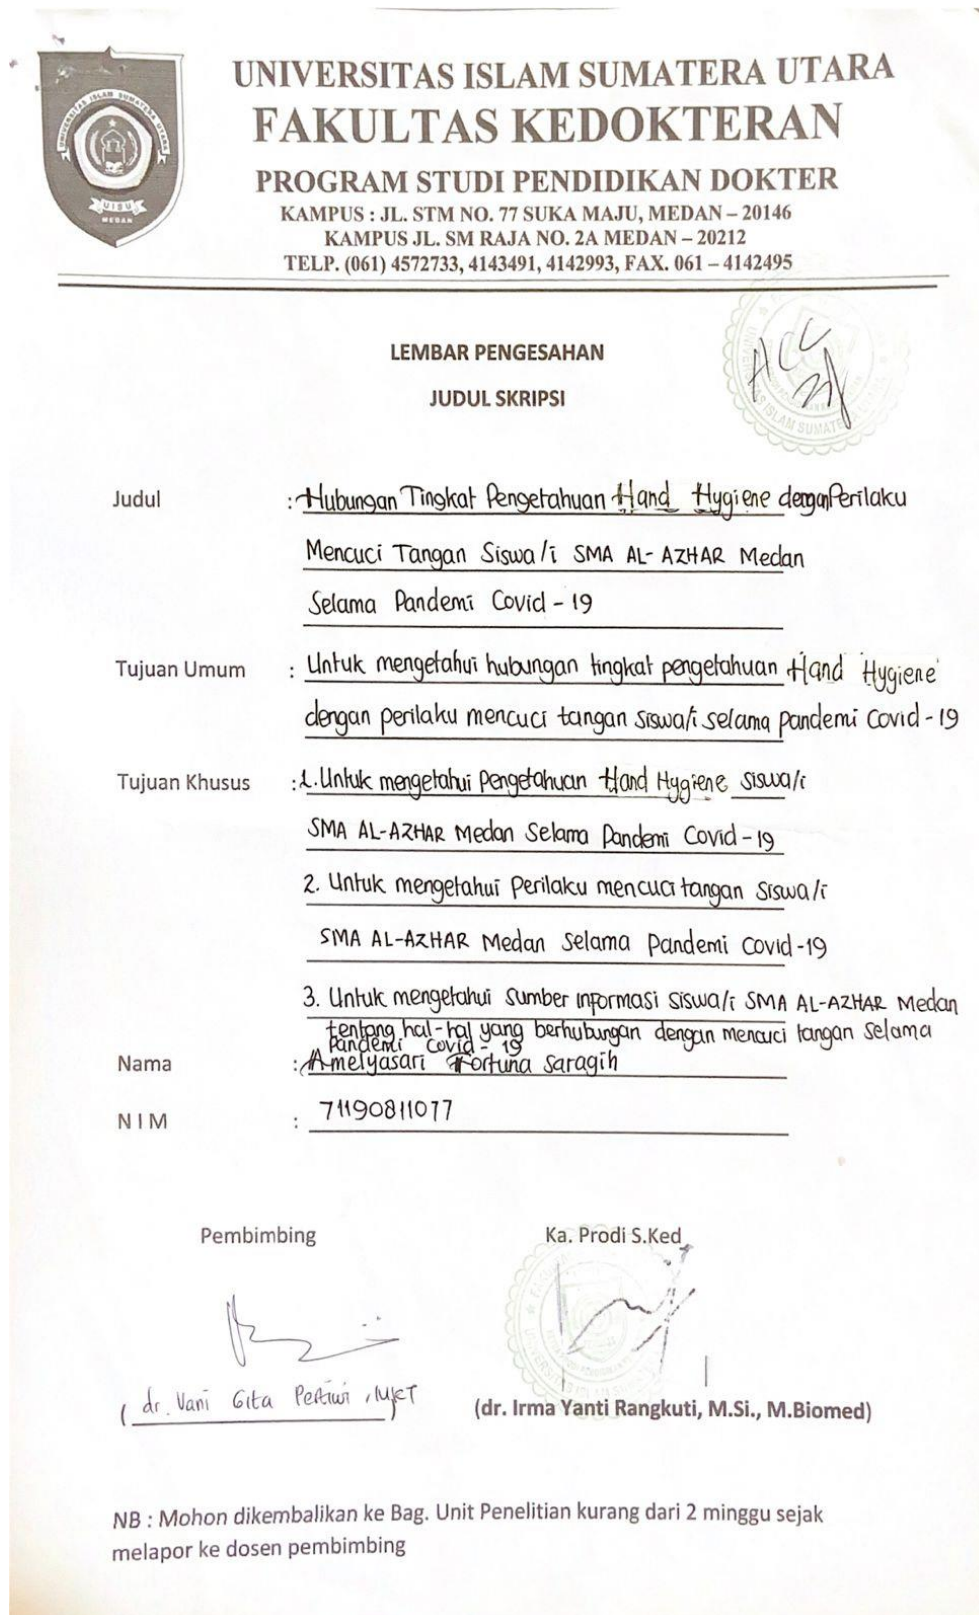 UNIVERSITAS ISLAM SUMATERA UTARA
UISU
MEDAN
UNIVERSITAS ISLAM SUMATERA UTARA
FAKULTAS KEDOKTERAN
PROGRAM STUDI PENDIDIKAN DOKTER
KAMPUS : JL. STM NO. 77 SUKA MAJU, MEDAN – 20146
KAMPUS JL. SM RAJA NO. 2A MEDAN – 20212
TELP. (061) 4572733, 4143491, 4142993, FAX. 061 – 4142495
LEMBAR PENGESAHAN
JUDUL SKRIPSI
ACC
Judul : Hubungan Tingkat Pengetahuan Hand Hygiene dengan Perilaku
Mencuci Tangan Siswa/i SMA AL-AZHAR Medan
Selama Pandemi Covid-19
Tujuan Umum : Untuk mengetahui hubungan tingkat pengetahuan Hand Hygiene
dengan perilaku mencuci tangan siswa/i selama pandemi Covid-19
Tujuan Khusus : 1. Untuk mengetahui Pengetahuan Hand Hygiene siswa/i
SMA AL-AZHAR Medan Selama Pandemi Covid-19
2. Untuk mengetahui Perilaku mencuci tangan Siswa/i
SMA AL-AZHAR Medan Selama Pandemi Covid-19
3. Untuk mengetahui Sumber informasi siswa/i SMA AL-AZHAR Medan
tentang hal-hal yang berhubungan dengan mencuci tangan selama
Pandemi Covid-19
Nama : Amelyasari Fortuna Saragih
NIM : 71190811077
Pembimbing Ka. Prodi S.Ked
(dr. Vani Gita Pertiwi, MKT) (dr. Irma Yanti Rangkuti, M.Si., M.Biomed)
NB : Mohon dikembalikan ke Bag. Unit Penelitian kurang dari 2 minggu sejak
melapor ke dosen pembimbing